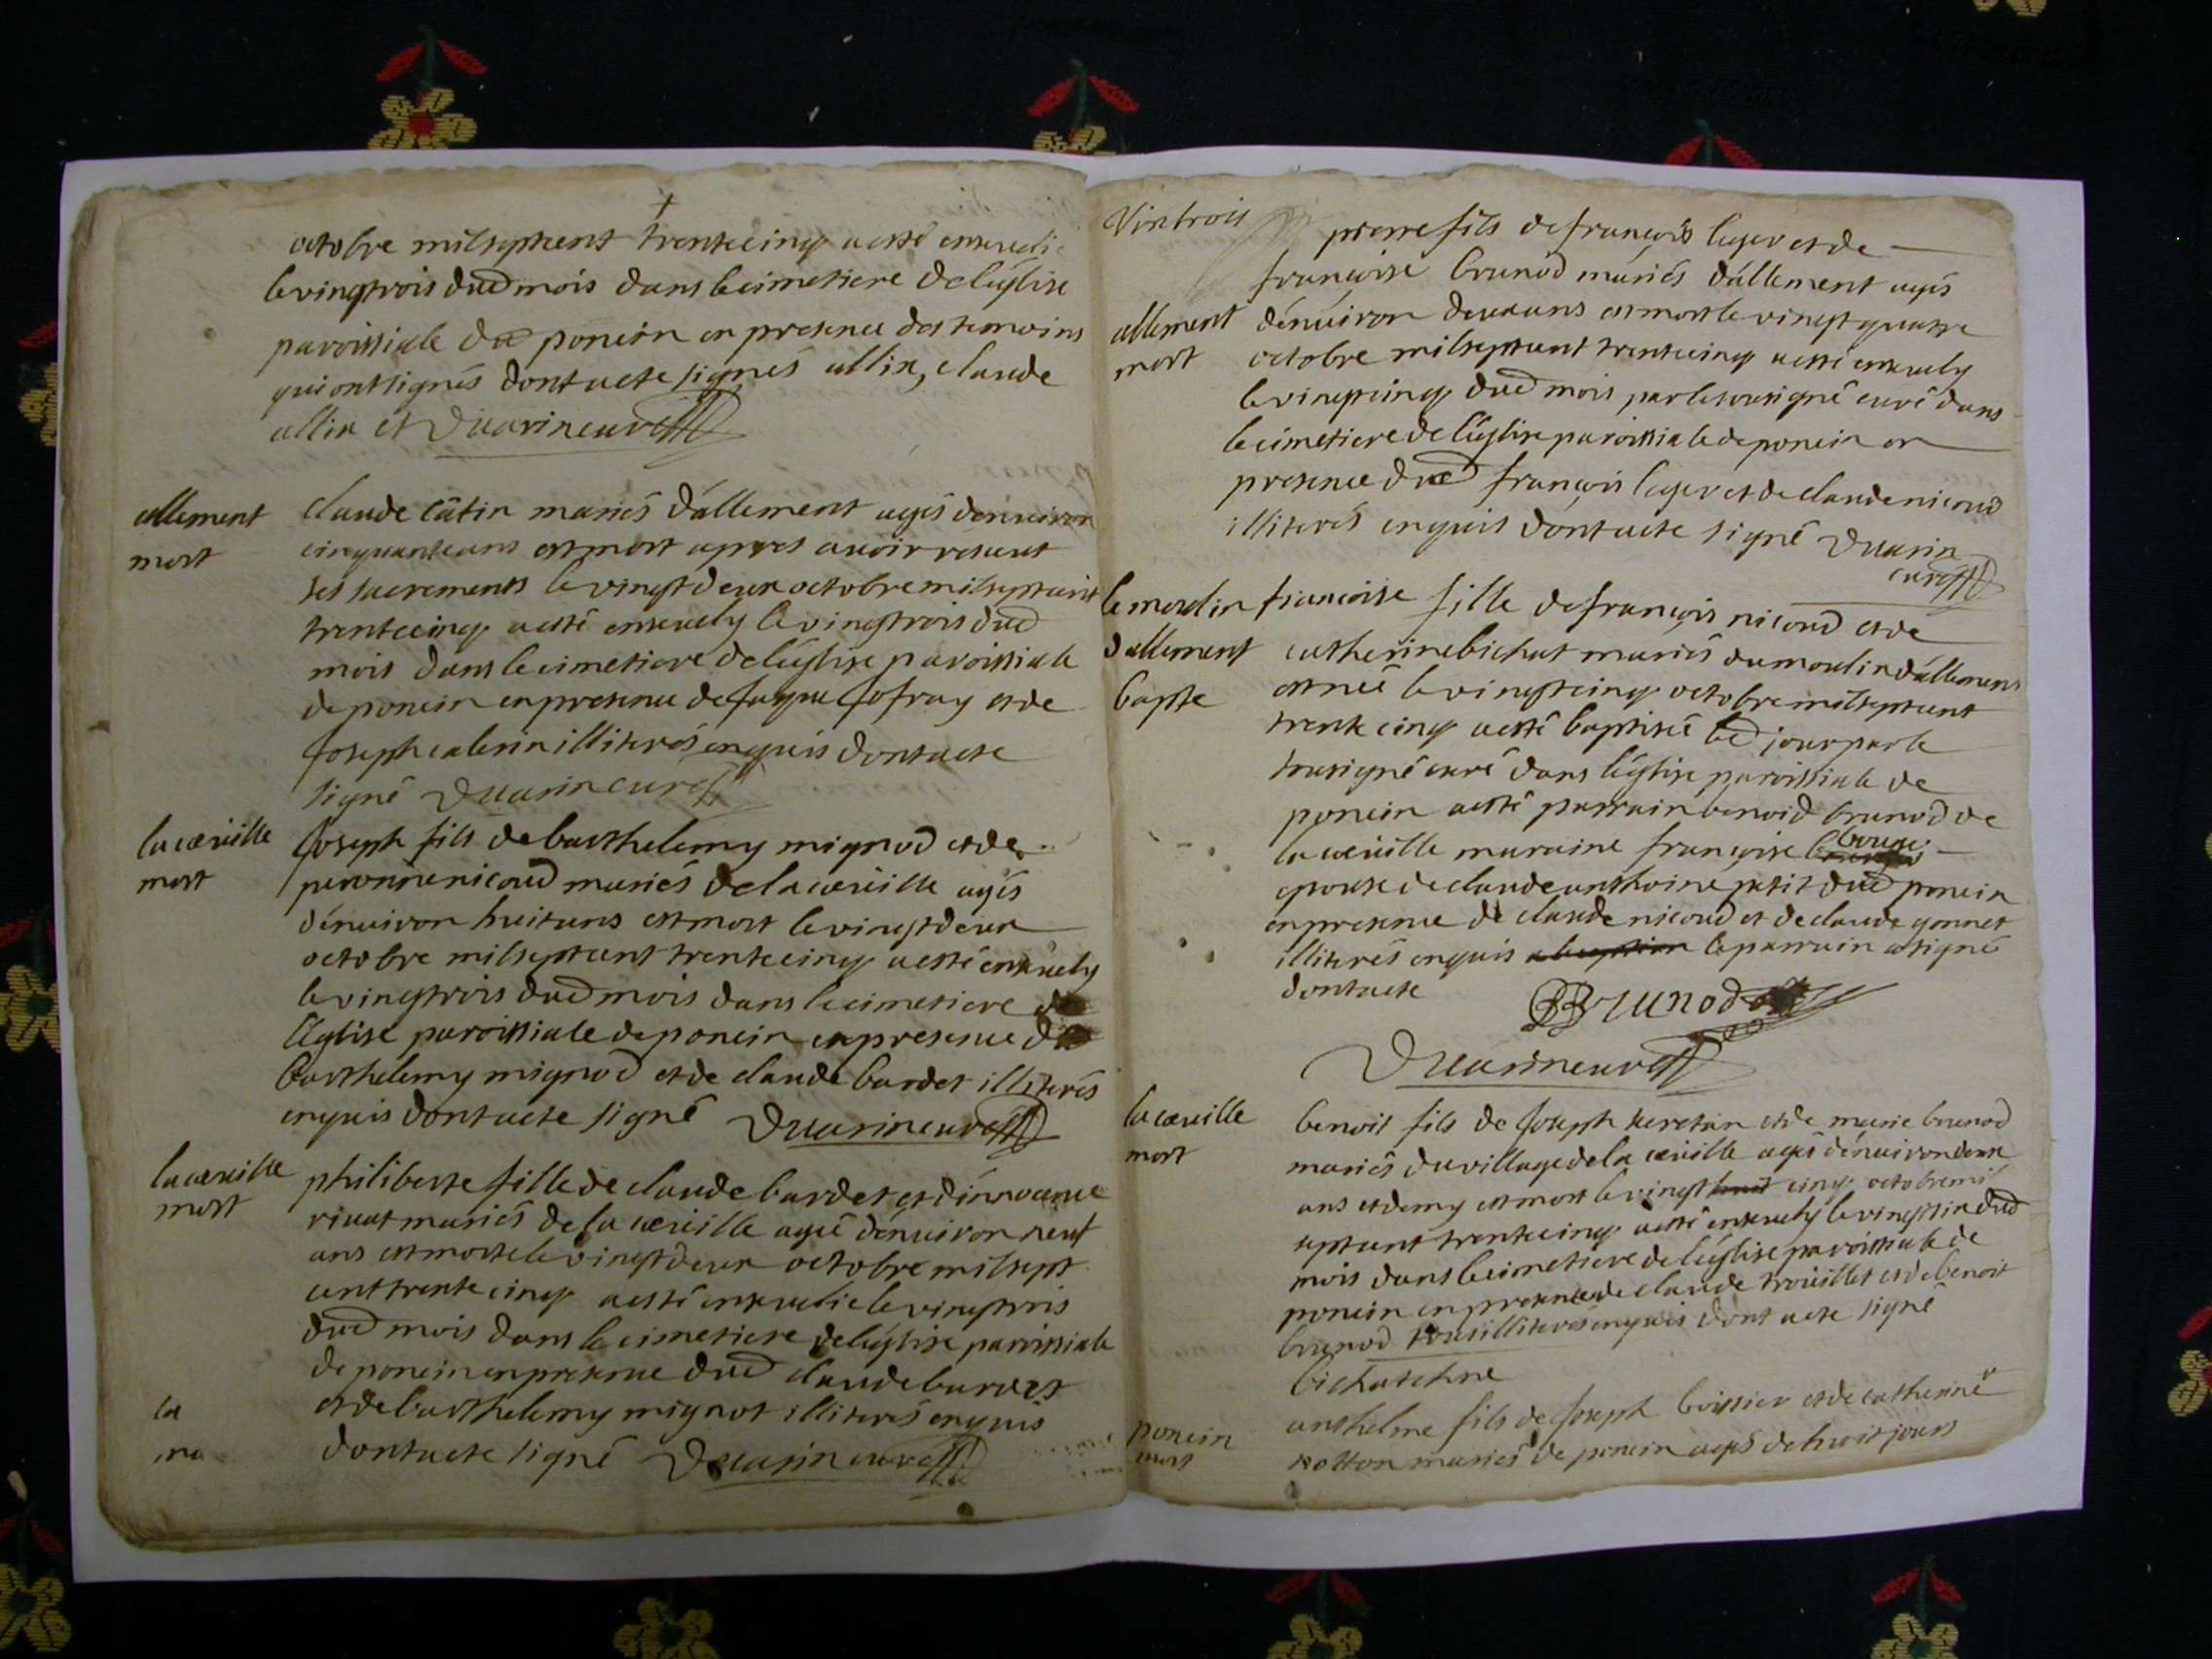 octobre milseptcent trentecinq aesté ensevelie
le vingtrois dud mois dans le cimetiere de léglise
paroissiale de poncin en presence des temoins
qui ont signés dont acte signés allix, claude
allix et Duarin curé
allement
mort
claude câtin mariés dállement agés dénuiron
cinquante ans est mort apres auoir resceut
ses sacrements le vingtdeux octobre milseptcent
trentecinq aesté ensevely le vingtrois dud
mois dans le cimetiere de léglise paroissiale
de poncin en presence de Jaque Jofray et de
Joseph caberin illiterés enquis dont acte
signé Duarin curé
la cœuille
mort
Joseph fils de barthelemy mignod et de
peronne nicoud mariés de la cœuille agés
dénuiron huit ans est mort le vingtdeux
octobre milseptcent trentecinq aesté ensevely
le vingtrois dud mois dans le cimetiere de
léglise paroissiale de poncin en presence dud
barthelemy mignod et de claude bardet illiterés
enquis dont acte signé Duarin curé
la cœuille
mort
philiberte fille de claude bardet et dínnocence
riuat mariés de la cœuille agée dénuiron neuf
ans est morte le vingtdeux octobre milsept
cent trente cinq aesté ensevelie le vingtrois
dud mois dans le cimetiere de léglise paroissiale
de poncin en presence dud claude bardet
et de barthelemy mignot illiterés enquis
dont acte signé Duarin curé
la
mo
Vintrois
pierre fils de françois leger et de
françoise brunod mariés dállement agés
allement
mort
dénuiron deux ans est mort le vingt quatre
octobre milseptcent trentecinq aesté ensevely
le vingtcinq dud mois par le sousigné curé dans
le cimetiere de léglise paroissiale de poncin en
presence dud françois leger et de claude nicoud
illiterés enquis dont acte signé Duarin
curé
le moulin
dallement
bapte
françoise fille de françois nicoud et de
catherine bichat mariés du moulin dállement
est née le vingtcinq octobre milseptcent
trente cinq aesté baptisée led jour par le
sousigné curé dans léglise paroissiale de
poncin aesté parrain benoid brunod de
la cœuille maraine françoise bouge
epouse de claude anthoine petit dud poncin
en presence de claude nicoud et de claude gonnet
illiterés enquis le parrain a signé
dont acte
BBrunod
Duarin curé
la cœuille
mort
benoit fils de Joseph et de marie brunod
mariés du village de la cœuille agé dénuiron deux
ans et demy est mort le vingt huit cinq octobre mil
septcent trentecinq aesté ensevely le vingtsix dud
mois dans le cimetiere de léglise paroissiale de
poncin en presence de claude trouillet et de benoit
brunod tous illiterés enquis dont acte signé
poncin
mort
anthelme fils de Joseph boissier et de catherine
cotton mariés de poncin agés de huit jours